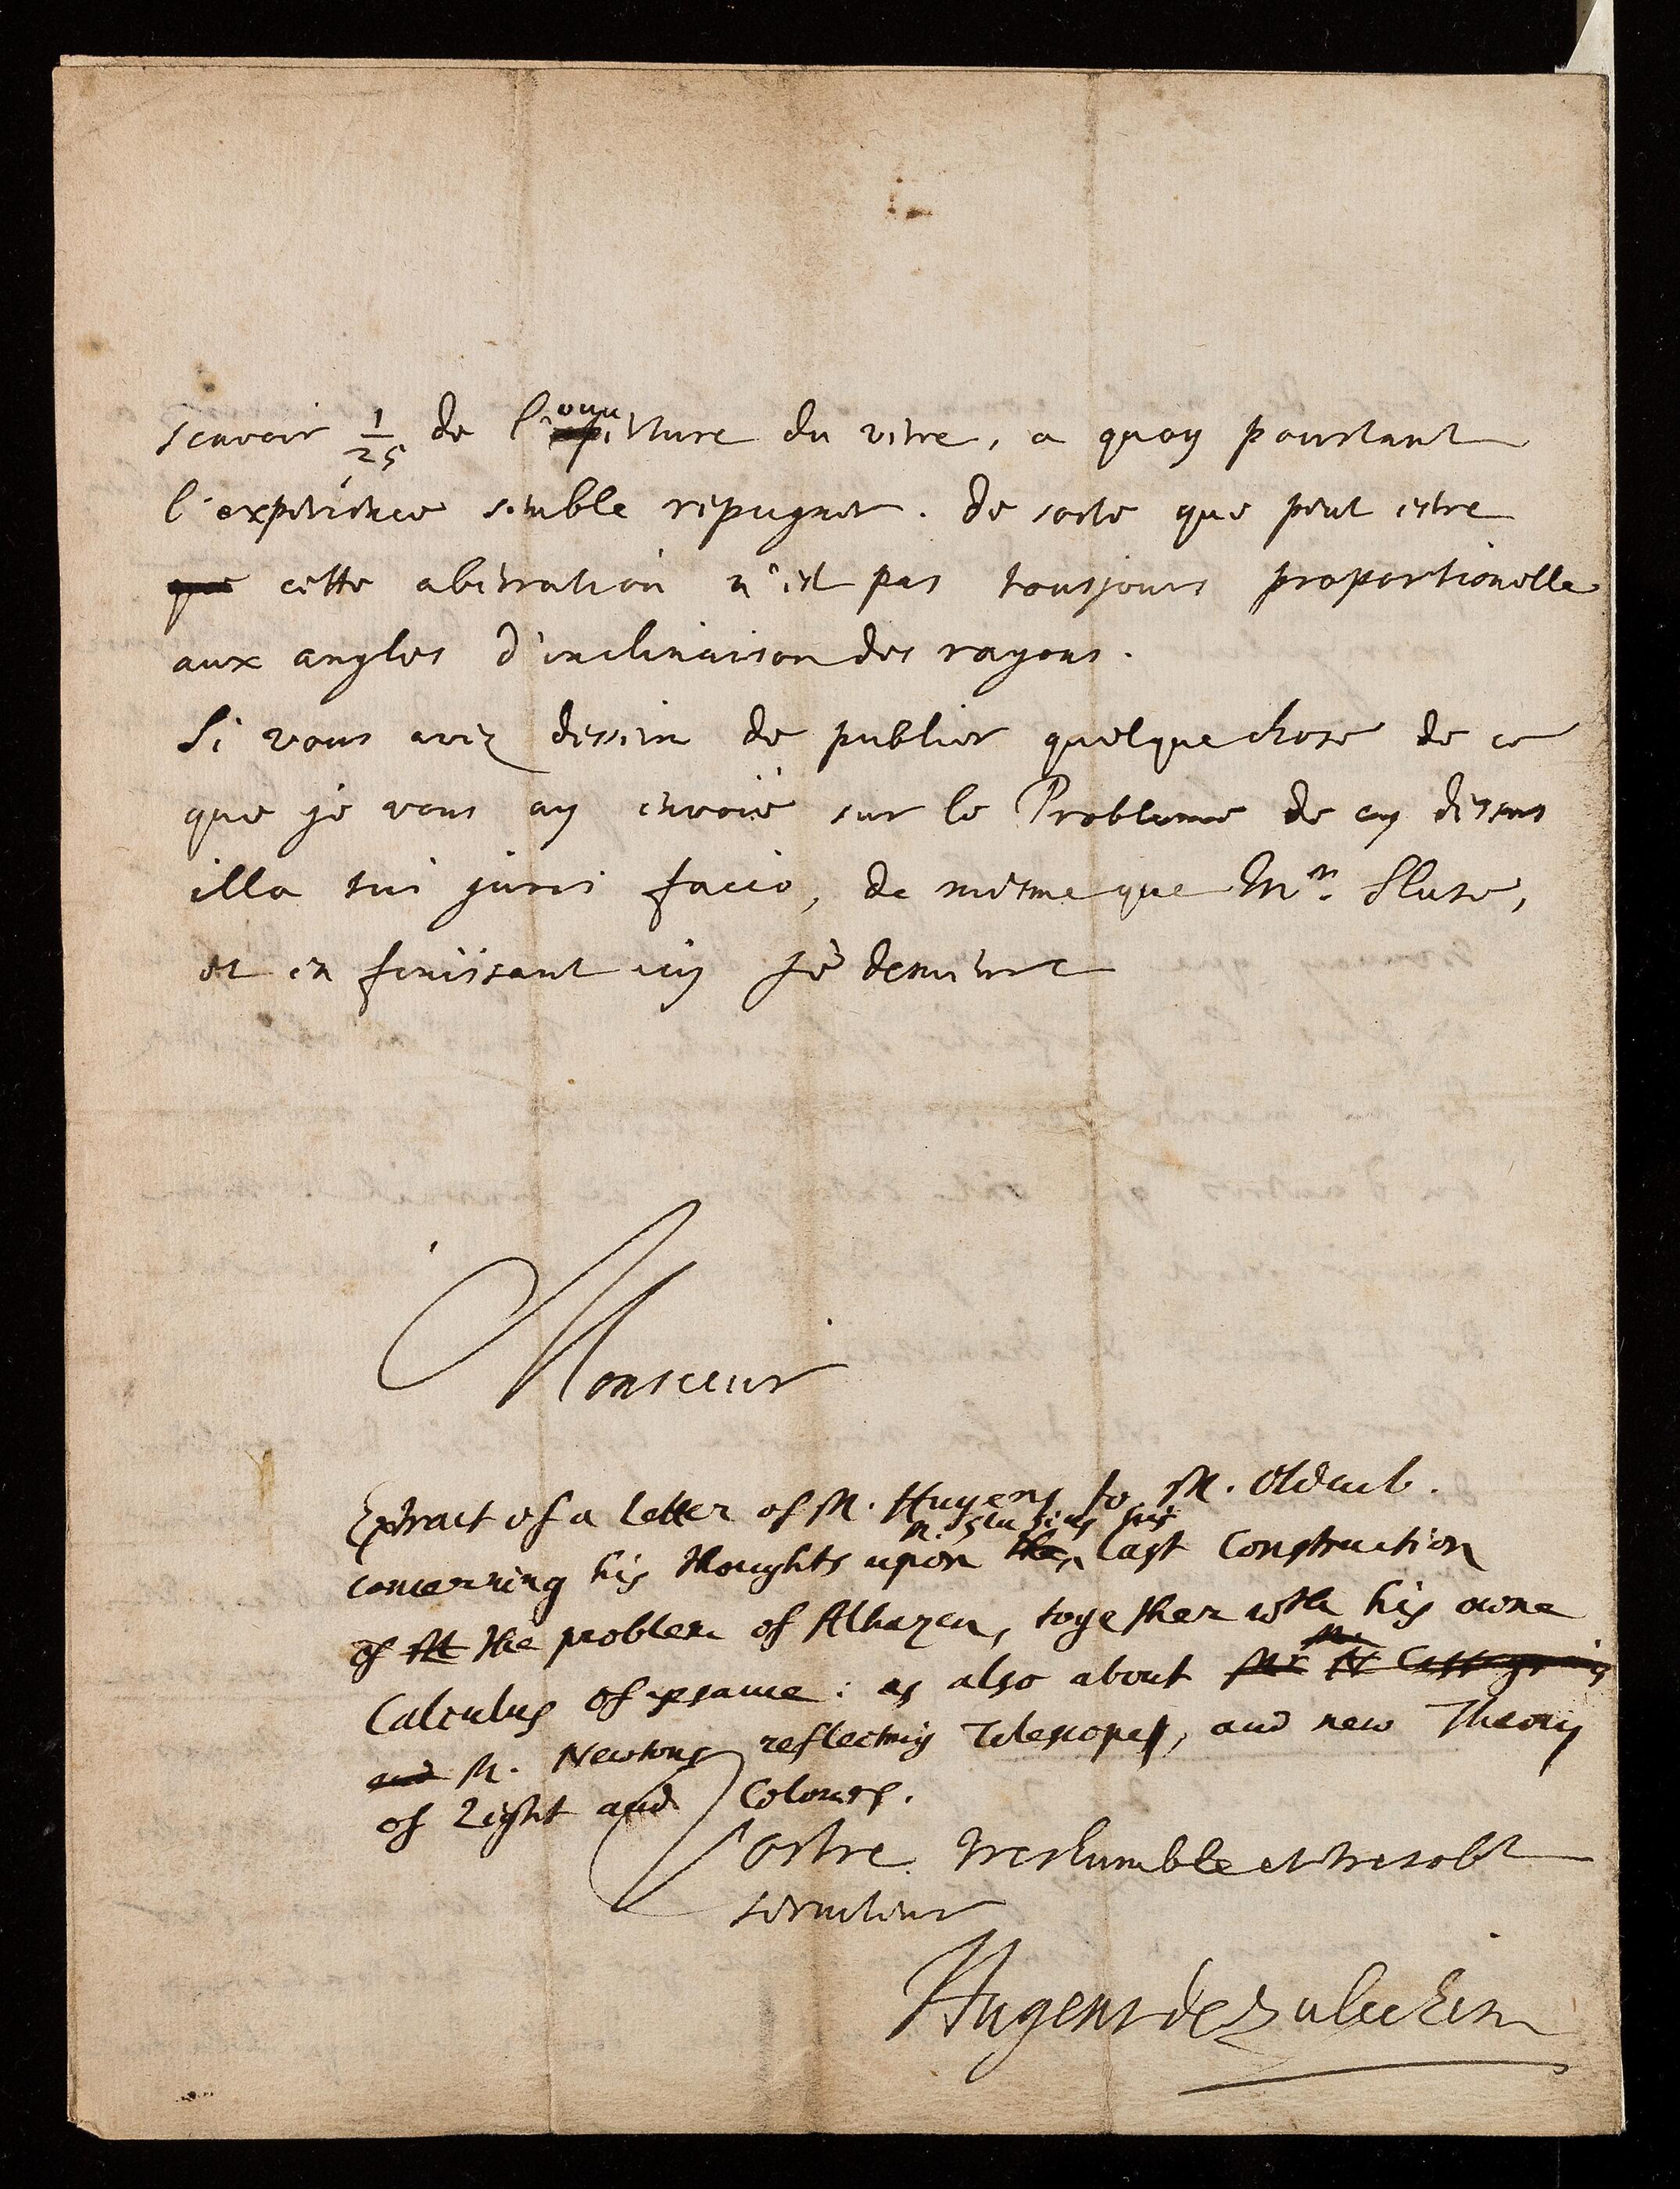 scavoir 1/25 de l'ouverture du verre, a quoy pourtant
l'experience semble repugner. de sorte que peut estre
que cette aberration n'est pas tousjours proportionelle
aux angles d'inclinaison des rayons.
Si vous avez dessein de publier quelque chose de ce
que je vous ay envoiè sur le Probleme de cy dessus
illa tui juris facio, de mesme que Mr. Sluse,
et en finissant icy je demeure
Monsieur
Extract of a letter of M. Hugens to M. Oldenb.
concerning his thoughts upon the M. Slusius his last Construction
of the problem of Alhazen, together wth his owne
Calculus of ye same: as also about Mr Cassegrins
and M. Newtons reflecting Telescopes, and new Theory
of Light and Colours.
Vostre treshumble et tresobt
serviteur
Hugens de Zulichem